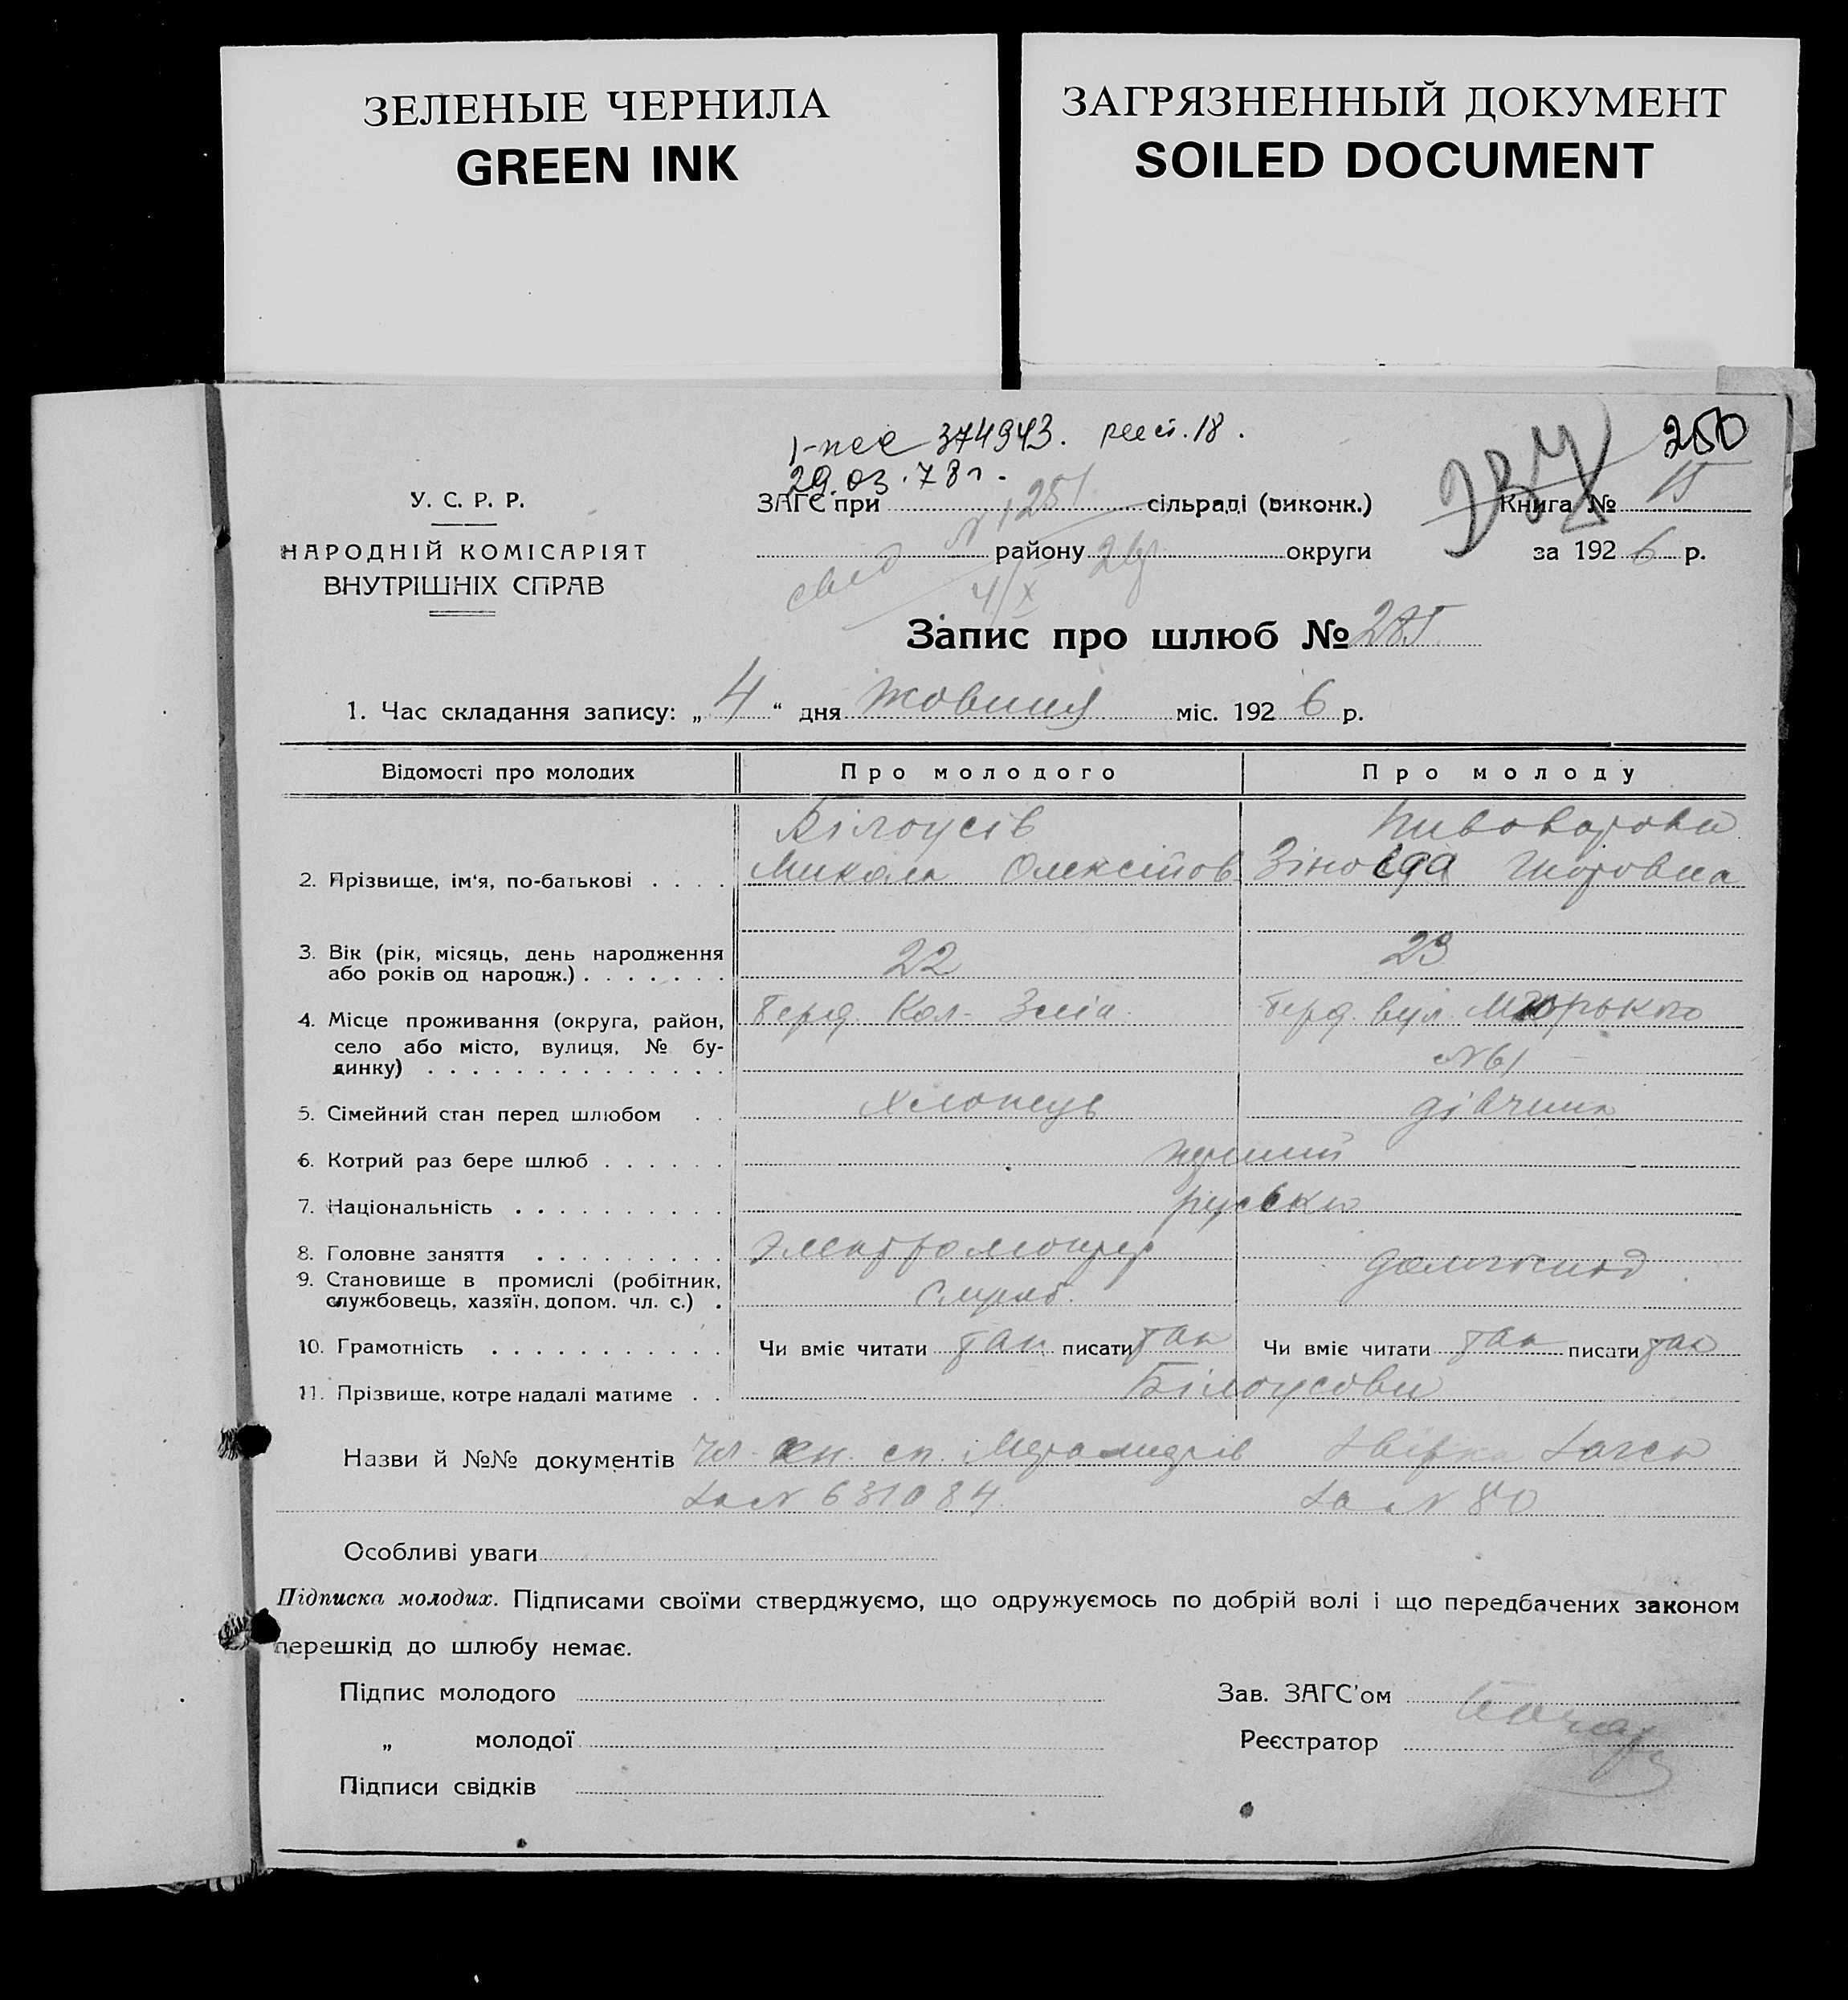 ЗЕЛЕНЫЕ ЧЕРНИЛА
GREEN INK
ЗАГРЯЗНЕННЫЙ ДОКУМЕНТ
SOILED DOCUMENT
374943.
250
29.03.78г.
У. С. Р. Р.
НАРОДНІЙ КОМІСАРІЯТ
ВНУТРІШНІХ СПРАВ
ЗАГС при № 1251 сільраді (виконк.)
району округи
4/X
Книга № 15
за 1926 р.
Запис про шлюб № 285
1. Час складання запису: „4“ дня Жовтня міс. 1926 р.
Відомості про молодих Про молодого Про молоду
Білоусів Пивоварова
2. Прізвище, ім'я, по-батькові . . . . Микола Олексійов
3. Вік (рік, місяць, день народження
або років од народж.) . . . . . . . 22 23
4. Місце проживання (округа, район, Берд. Кол. Берд. вул. Горького
село або місто, вулиця, № бу-
динку) . . . . . . . . . . . . . . №61
5. Сімейний стан перед шлюбом . . хлопець дівчина
6. Котрий раз бере шлюб . . . . . . перший
7. Національність . . . . . . . . . . руськи
8. Головне заняття . . . . . . . . . Электромонтер домгоспод
9. Становище в промислі (робітник,
службовець, хазяїн, допом. чл. с.) .
10. Грамотність . . . . . . . . . . . Чи вміє читати так писати так Чи вміє читати так писати так
11. Прізвище, котре надалі матиме . . Білоусови
Назви й №№ документів Чл. кн. сп. Загса
За № 631084 За № 80
Особливі уваги
Підписка молодих. Підписами своїми стверджуємо, що одружуємось по добрій волі і що передбачених законом
перешкід до шлюбу немає.
Підпис молодого
„ молодої
Підписи свідків
Зав. ЗАГС'ом
Реєстратор